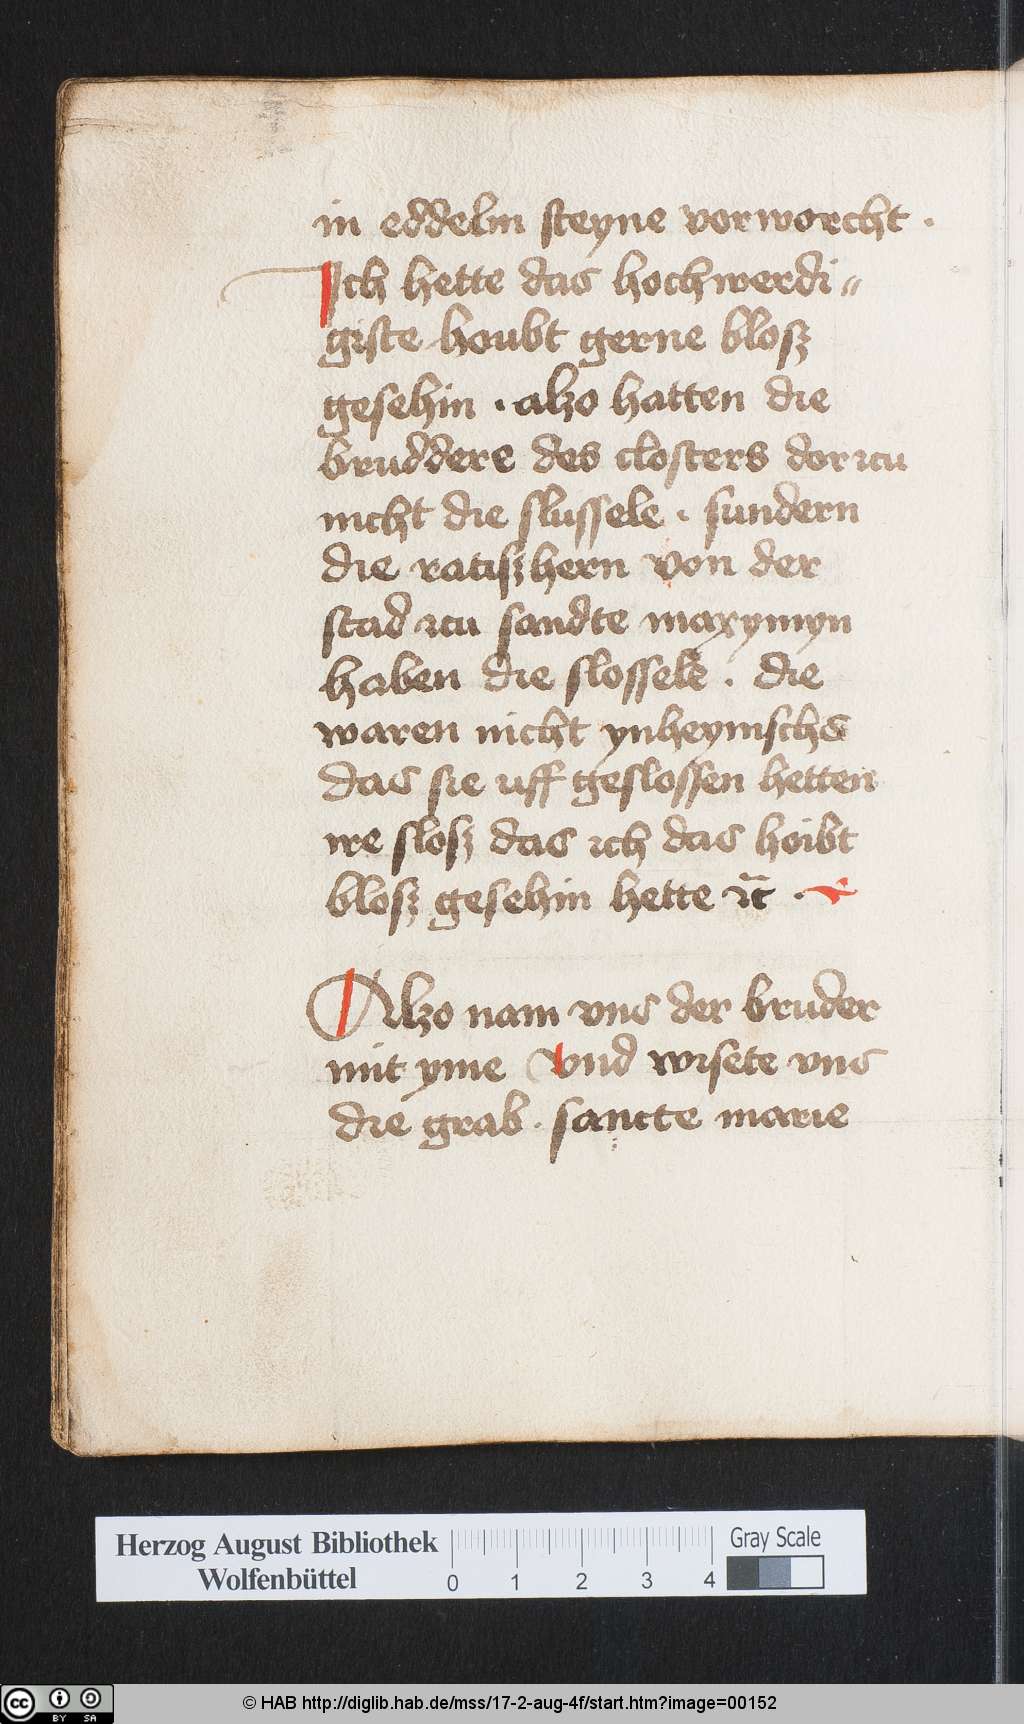 in eddelm steyne vorworcht .
Ich hette das hochwerdi⸗
giste houbt gerne blosz
gesehin . alzo hatten die
bruddere des closters dor zcu
nicht die slussele . sundern
die ratiszhern von der
stad zcu sandte maxymyn
haben die slossele . die
waren nicht ynheymschs
das sie uff geslossen hetten
we slosz das ich das hoibt
blosz gesehin hette ꝛc̃ .
Alzo nam vns der bruder
mit yme Vnd wisete vns
die grab . sancte marie
Herzog August Bibliothek
Wolfenbüttel
0 1 2 3 4
Gray Scale
cc BY SA
© HAB http://diglib.hab.de/mss/17-2-aug-4f/start.htm?image=00152